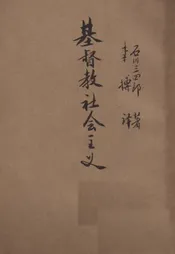 石川三四郎 著
李博 譯
基督教社会主义